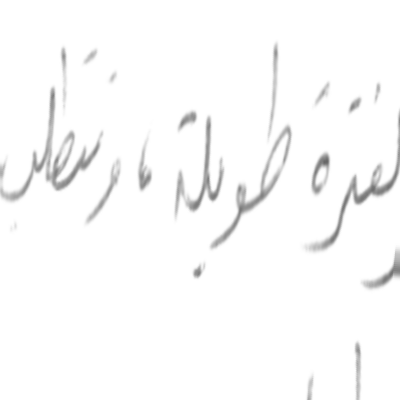 لفترة طويلة، وتتطلب